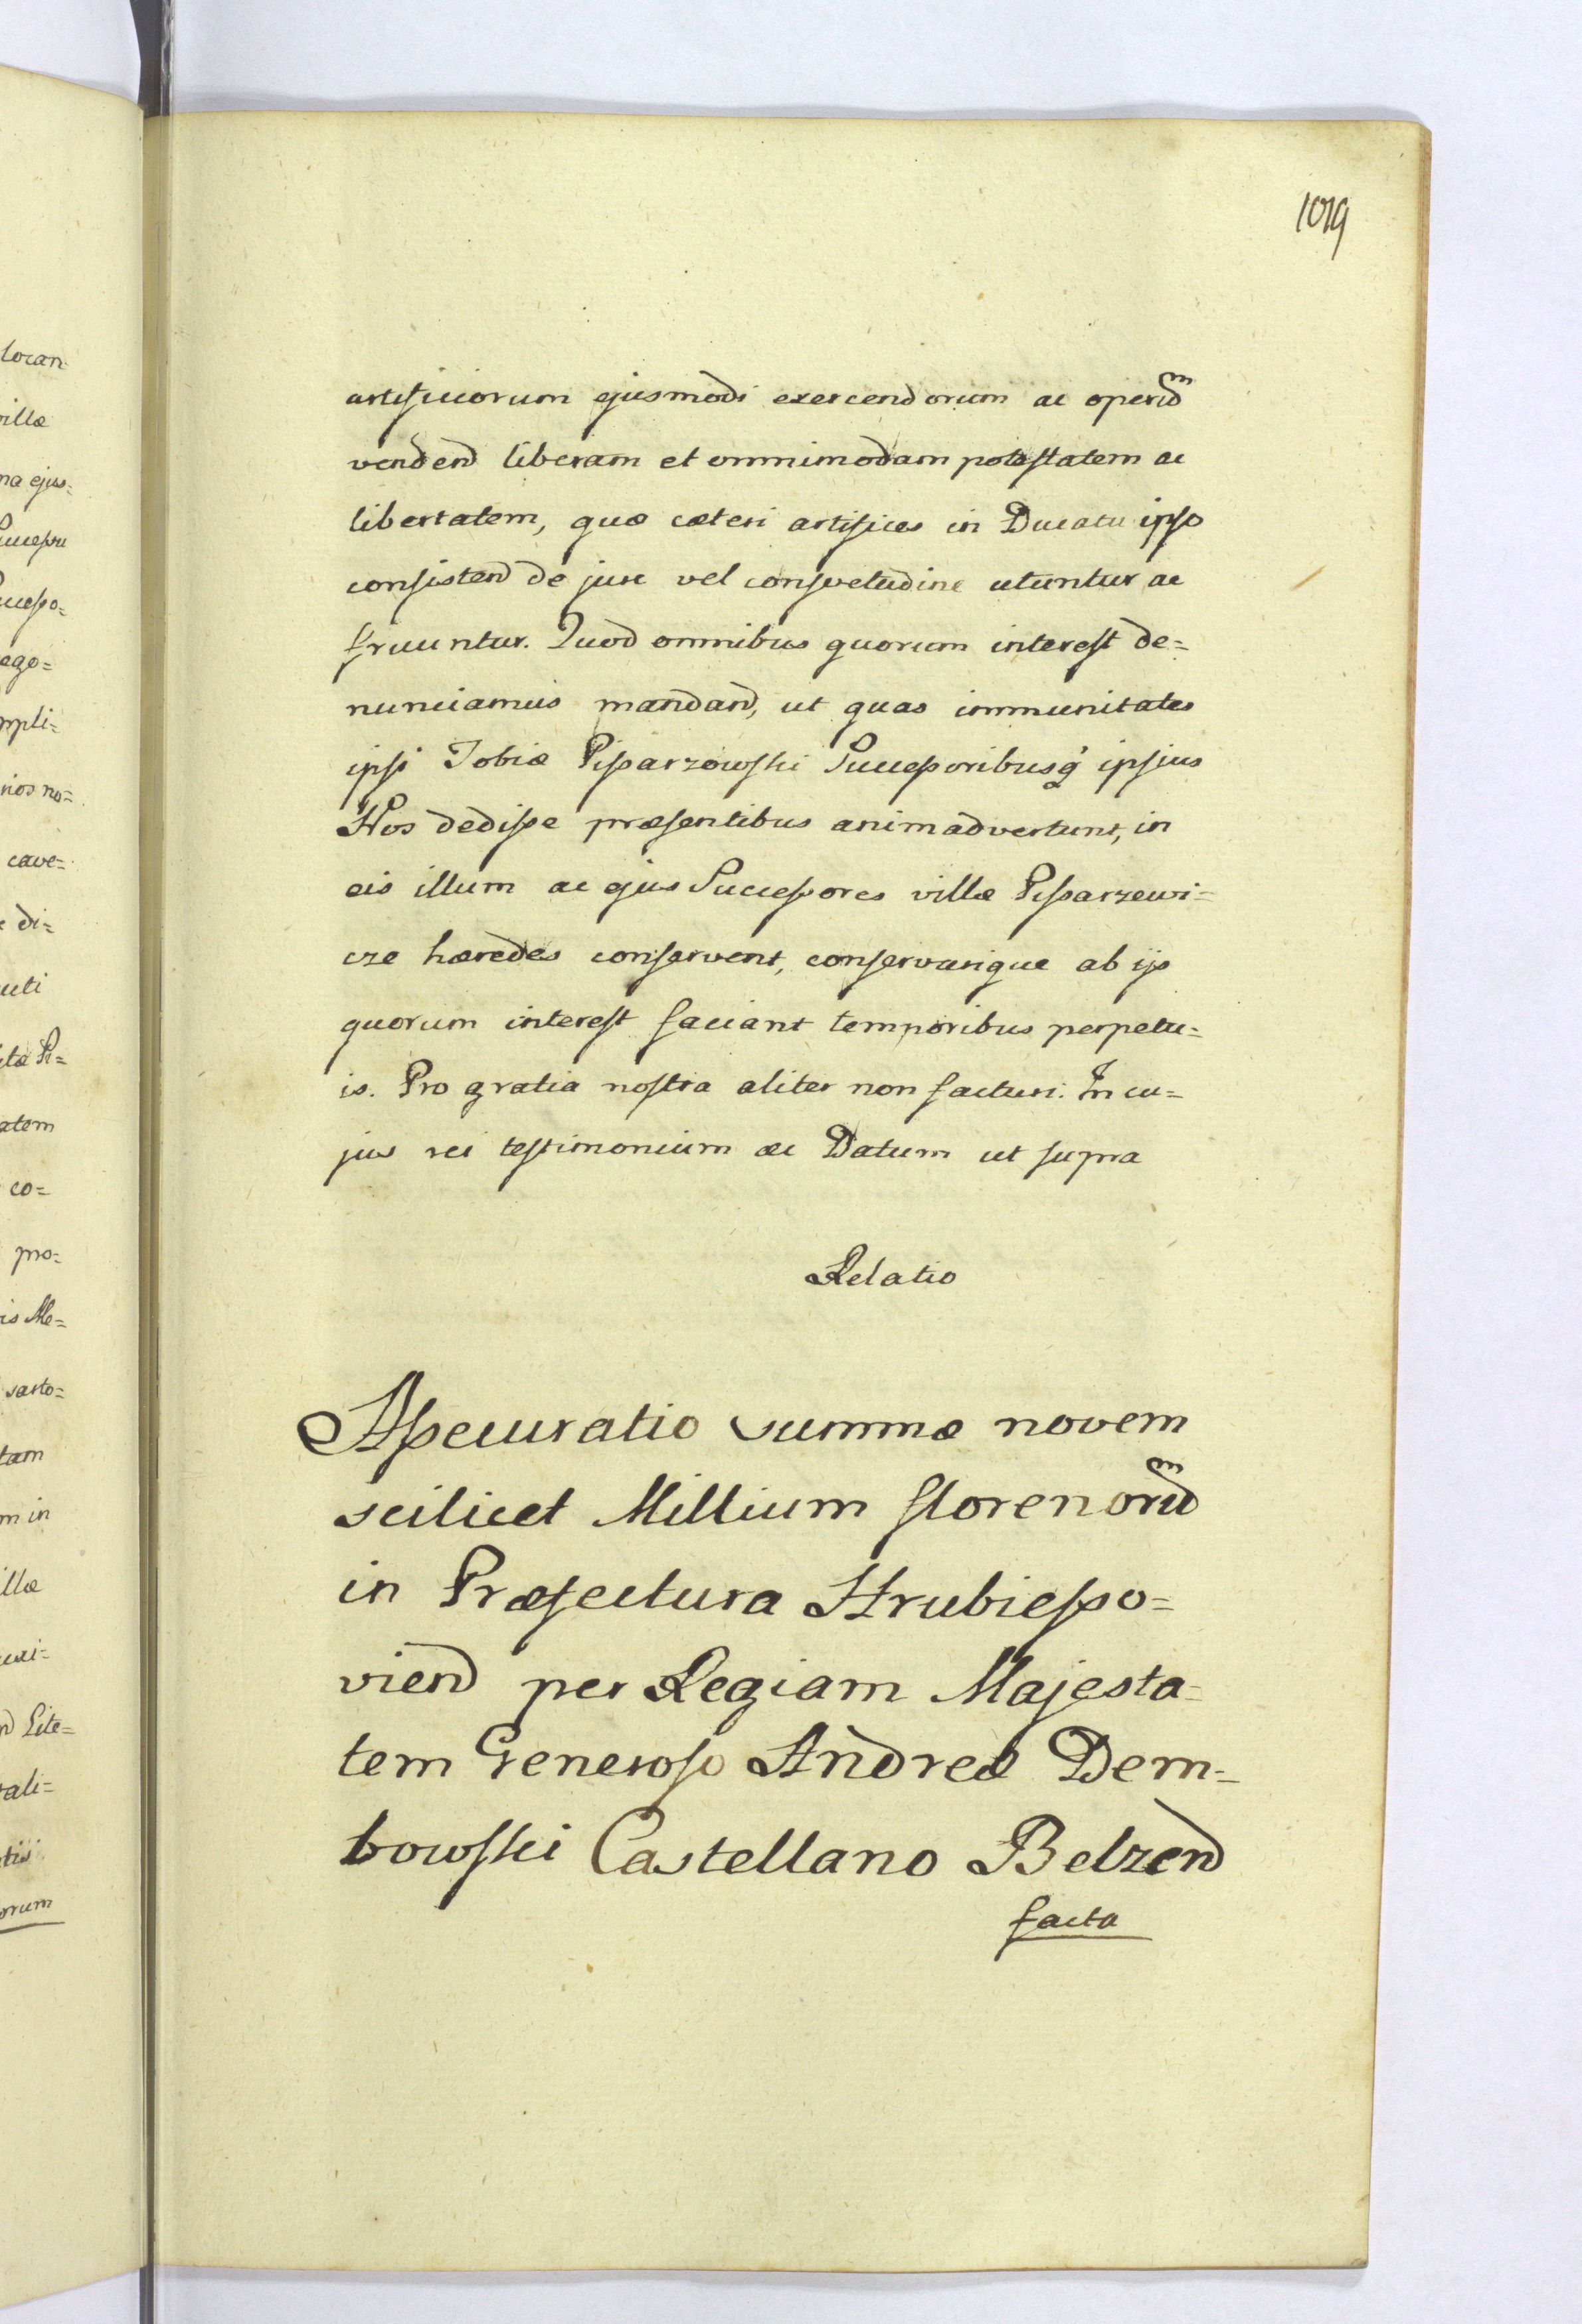 1019
artificiorum ejusmodi exercendorum ac operum
vendend liberam et omnimodam potestatem ac
libertatem, quæ cæteri artifices in Ducatu ipso
consistend de jure vel consvetudine utuntur ac
fruuntur. Quod omnibus quorum interest de=
nunciamus mandand, ut quas immunitates
ipsi Tobiæ Pisarzowski Successoribusq ipsius
Nos dedisse præsentibus animadvertunt, in
eis illum ac ejus Successores villæ Pisarzewi=
cze hæredes conservent, conservarique ab ijs
quorum interest faciant temporibus perpetu=
is. Pro gratia nostra aliter non facturi. In cu=
jus rei testimonium ac Datum ut supra
Relatio
Assecuratio summæ novem
scilicet Millium florenorum
in Præfectura Hrubiesso=
viend per Regiam Majesta=
tem Generoso Andreæ Dem=
bowski Castellano Belzend
facta
locan=
villæ
na ejus=
ago=
mpli=
rios no=
cave=
di=
uti
atem
co=
pro=
is Me=
sarto=
tam
m in
illæ
Lite=
rali=
tis
orum